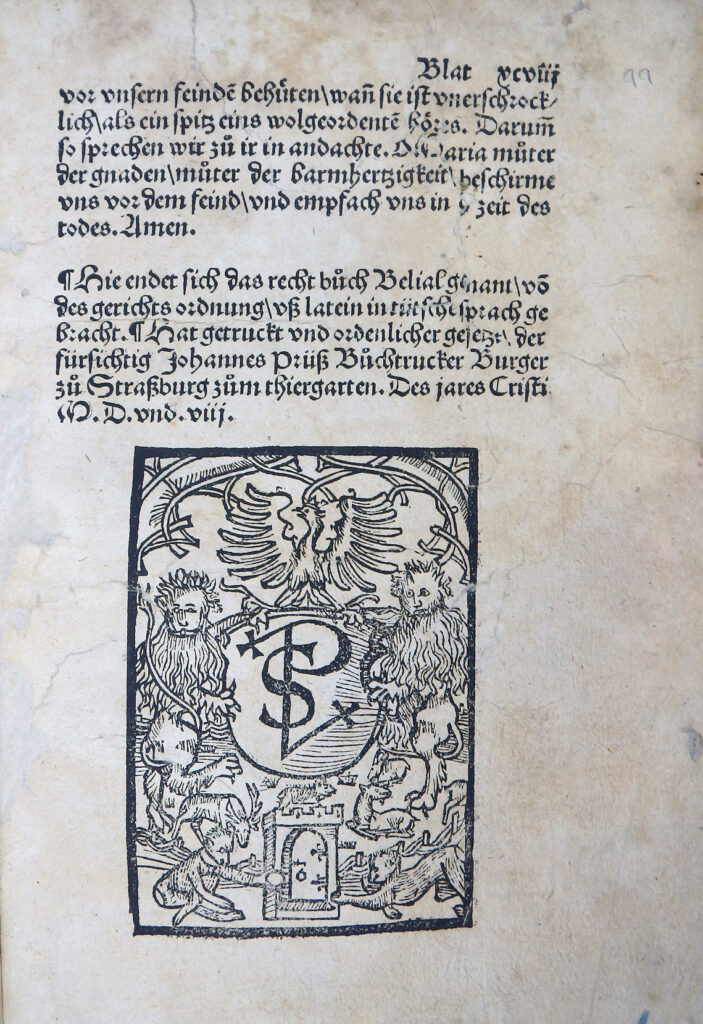 Blat xcviij
99
vor vnsern feindē behuͤten\wañ sie ist vnerschrock⸗
lich\als ein spitz eins wolgeordentē hoͤres. Darum̄
so sprechen wir zuͦ ir in andachte. O Maria muͦter
der gnaden\muͦter der barmhertzigkeit\beschirme
vns vor dem feind\vnd empfach vns in zeit des
todes. Amen.
¶ Hie endet sich das recht buͦch Belial genant\vō
des gerichts ordnung\vß latein in tütsche sprach ge
bracht. ¶ Hat getruckt vnd ordenlicher gesetzt\ der
fürsichtig Johannes Prüß Buͦchtrucker Burger
zuͦ Straßburg zuͦm thiergarten. Des jares Cristi
M. D. vnd. viij.